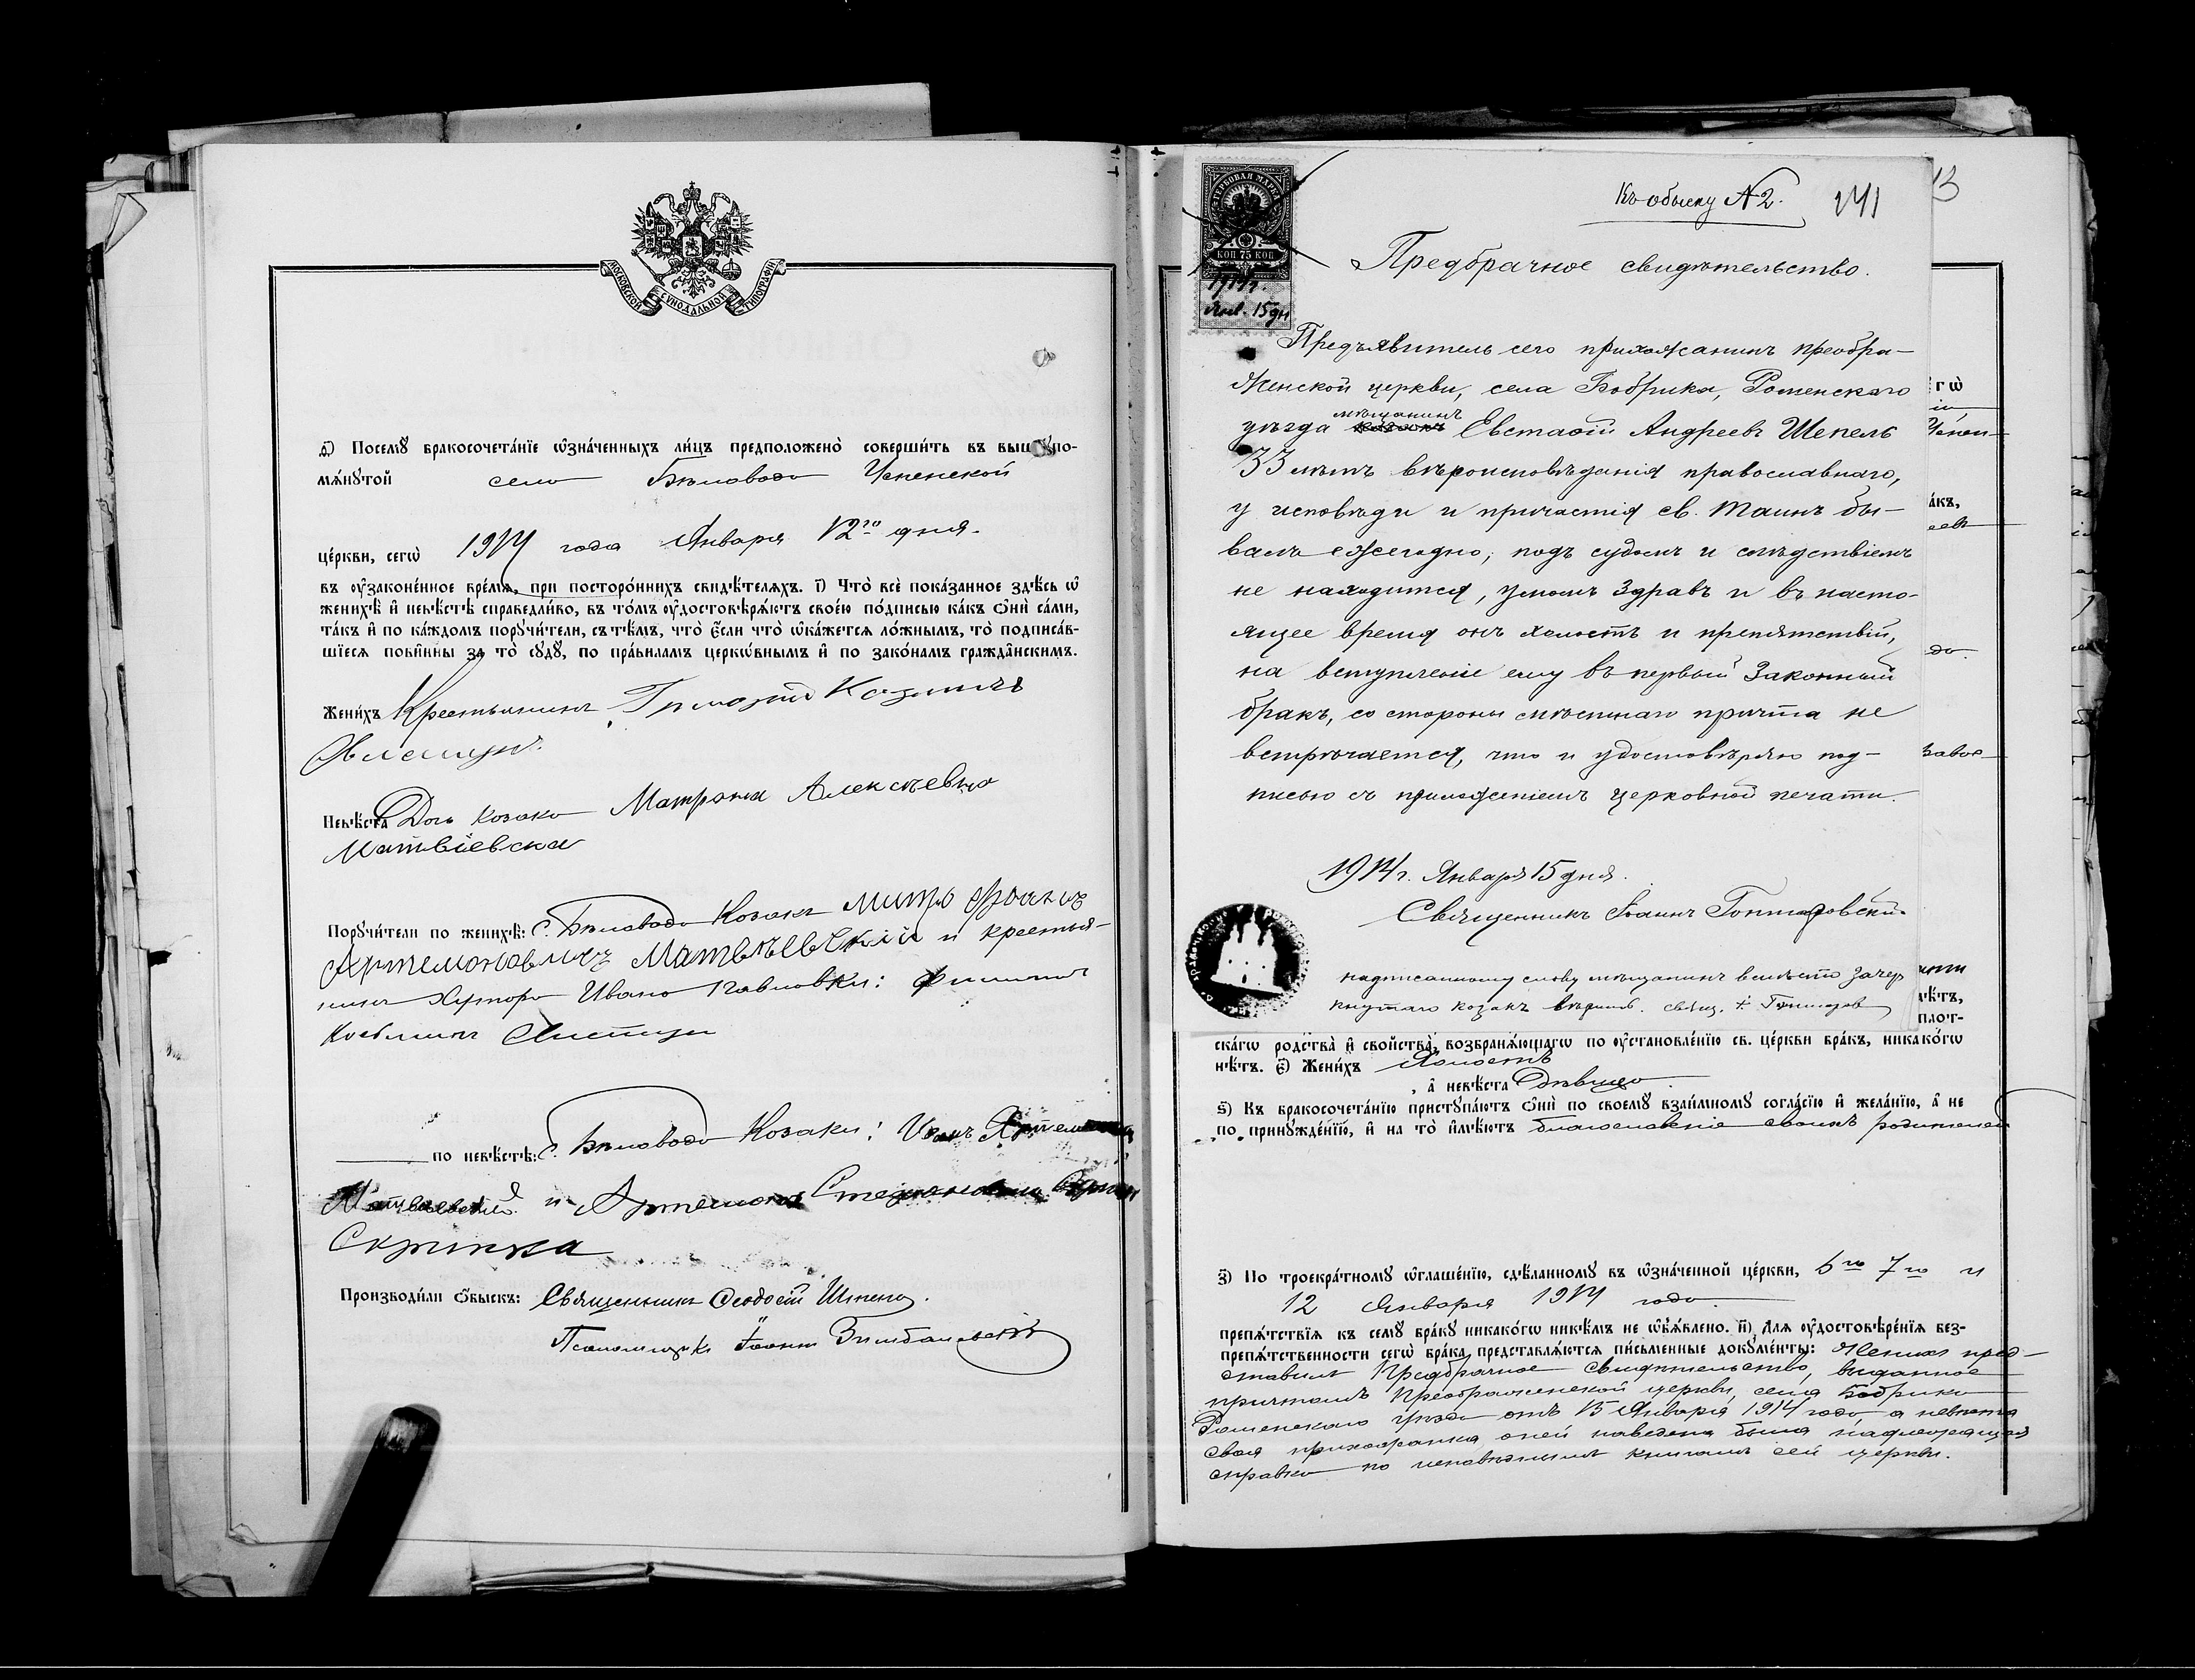 МОСКОВСКОЙ СѴНОДАЛЬНОЙ ТИПОГРАФІИ
Посемꙋ бракосочета́нїе ѡ҆зна́ченныхъ ли́цъ предположено̀ соверши́ть въ вышꙋпо-
мѧ́нꙋтой село Бѣловода Успенской
це́ркви, сегѡ̀ 1914 года Января 12го дня.
въ ᲂу҆законе́нное вре́мѧ, при посторо́ннихъ свидѣ́телѧхъ. і҃) Что̀ всѐ пока́занное здѣ́сь ѡ҆
женихѣ̀ и҆ невѣ́стѣ справедли́во, въ то́мъ ᲂу҆достовѣрѧ́ютъ свое́ю по́дписью ка́къ ѻ҆нѝ са́ми,
та́къ и҆ по ка́ждомъ порꙋчи́тели, съ тѣ́мъ, что̀ є҆́сли что̀ ѡ҆ка́жется ло́жнымъ, то̀ подписа́в-
шїесѧ пови́нны за то̀ сꙋдꙋ̀, по пра́виламъ церкѡ́внымъ и҆ по зако́намъ гражда̑нскимъ.
Жени́хъ Крестьянинъ
Невѣ́ста Дочь козака Матрона Алексѣевна
Матвіевская
Порꙋчи́тели по женихѣ̀: с. Бѣловода Козакъ Митрофанъ
Артемоновичъ Матвѣевскій и крестья-
нинъ Хутора Ивано Павловки: Филиппъ
по невѣ́стѣ: с. Бѣловода Козаки: Иванъ
Матвѣевскій и Артемонъ
Скрипка
Производи́ли ѻ҆́быскъ: Священникъ Ѳеодосій
Псаломщикъ Іоаннъ
Къ обыску № 2. 141
13
ГЕРБОВАЯ МАРКА
КОП 75 КОП
1914 г.
Янв. 15 дн
Предбрачное свидѣтельство.
Предъявитель сего прихожанинъ преобра-
женской церкви, села Бобрика, Роменскаго
мѣщанинъ
уѣзда козакъ Евстафій Андреевъ Шепель
33 лѣтъ вѣроисповѣданія православнаго,
у исповѣди и причастія св. Таинъ бы-
валъ ежегодно, подъ судомъ и слѣдствіемъ
не находится, умомъ здравъ и въ насто-
ящее время онъ холостъ и препятствій,
на вступленіе ему въ первый законный
бракъ, со стороны мѣстнаго причта не
встрѣчается, что и удостовѣряю под-
писью съ приложеніемъ церковной печати.
1914 г. Января 15 дня.
Священникъ Іоаннъ
надписанному слову мѣщанинъ вмѣсто зачер
кнутаго козакъ вѣрить. свящ. І.
ска́гѡ родства̀ и҆ свойства̀, возбранѧ́ющагѡ по ᲂу҆становле́нїю св. це́ркви бра́къ, никако́гѡ
нѣ́тъ. є҃) Жени́хъ Холостъ
, а҆ невѣ́ста Дѣвица.
ѕ҃) Къ бракосочета́нїю пристꙋпа́ютъ ѻ҆нѝ по своемꙋ̀ взаи́мномꙋ согла́сїю и҆ жела́нїю, а҆ не
по принꙋжде́нїю, и҆ на то̀ и҆мѣ́ютъ благословеніе своихъ родителей
з҃) По троекра́тномꙋ ѡ҆глаше́нїю, сдѣ́ланномꙋ въ ѡ҆зна́ченной це́ркви, 6го 7го и
12 Января 1914 года.
препѧ́тствїѧ къ семꙋ̀ бра́кꙋ никако́гѡ никѣ́мъ не ѡ҆бъѧ́влено. и҃) Длѧ ᲂу҆достовѣре́нїѧ без-
препѧ́тственности сегѡ̀ бра́ка представлѧ́ютсѧ пи́сьменные докꙋме́нты: Женихъ пред-
ставилъ Предбрачное свидѣтельство, выданное
причтомъ Преображенской церкви, села Бобрика
Роменскаго уѣзда отъ 15 Января 1914 года, а невѣста
своя прихожанка, о ней наведена была надлежащая
справка по исповѣднымъ книгамъ сей церкви.